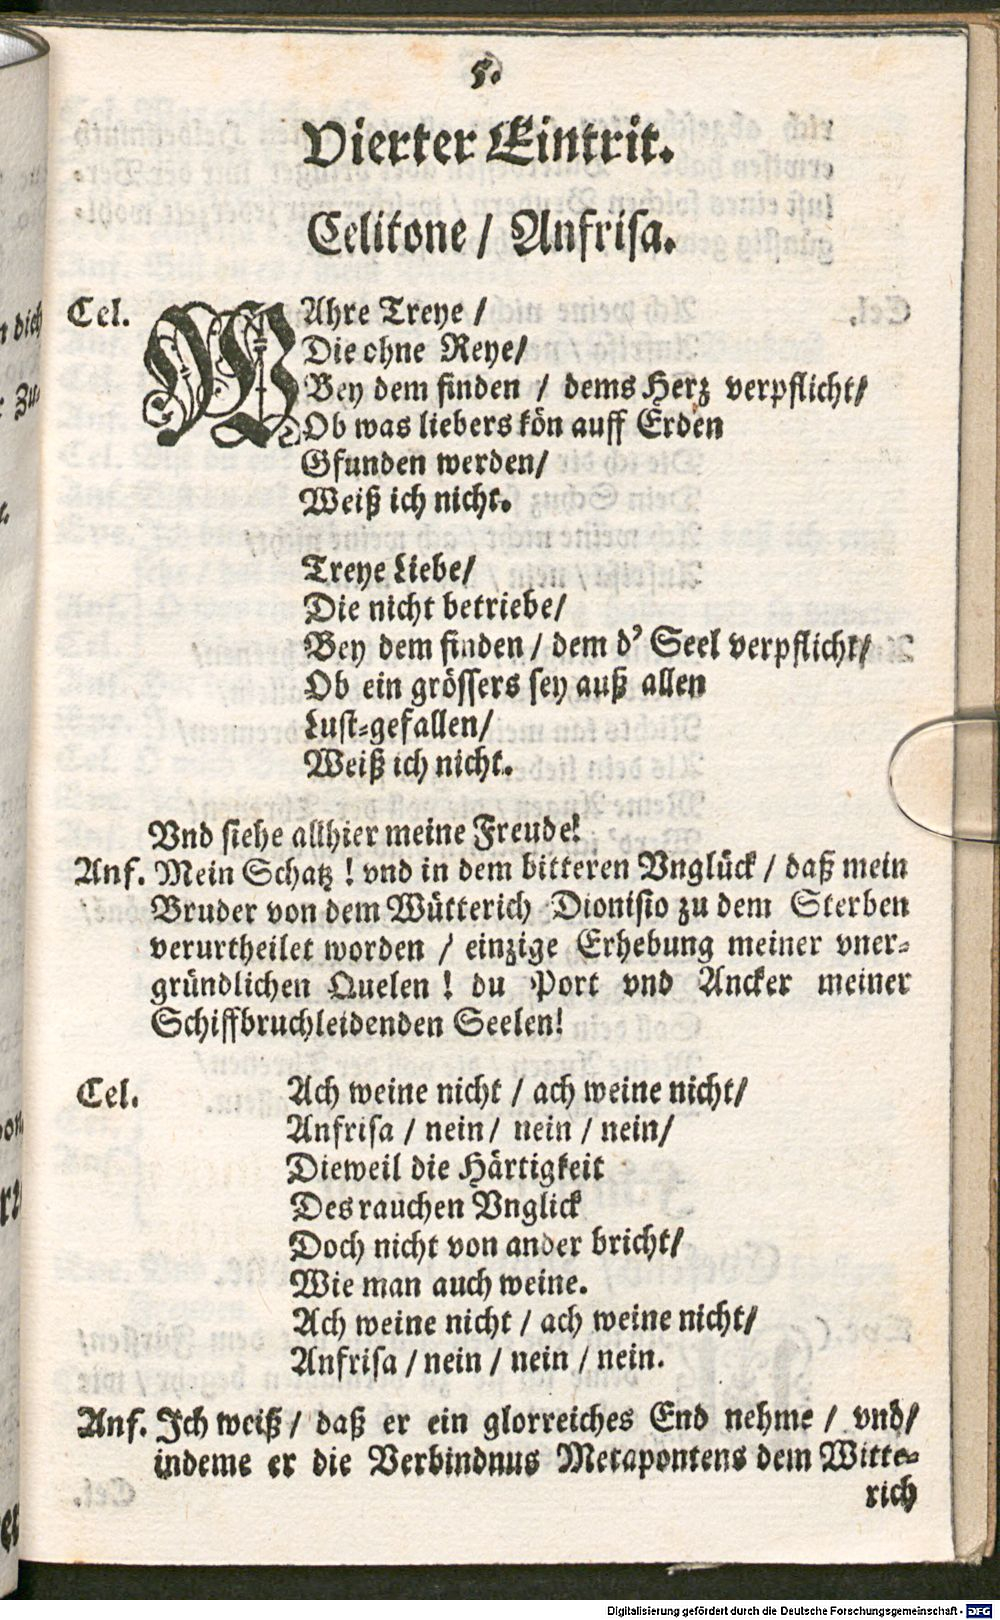 5.
Vierter Eintrit.
Celitone / Anfrisa.
Cel. WAhre Treye /
Die ohne Reye/
Bey dem finden / dems Herz verpflicht/
Ob was liebers kön auff Erden
Gfunden werden/
Weiß ich nicht.
Treye Liebe/
Die nicht betriebe/
Bey dem finden / dem d' Seel verpflicht/
Ob ein grössers sey auß allen
Lust-gefallen/
Weiß ich nicht.
Vnd siehe allhier meine Freude!
Anf. Mein Schatz ! vnd in dem bitteren Vnglück / daß mein
Bruder von dem Wütterich Dionisio zu dem Sterben
verurtheilet worden / einzige Erhebung meiner vner-
gründlichen Quelen ! du Port vnd Ancker meiner
Schiffbruchleidenden Seelen!
Cel. Ach weine nicht / ach weine nicht/
Anfrisa / nein / nein / nein/
Dieweil die Härtigkeit
Des rauchen Vnglick
Doch nicht von ander bricht/
Wie man auch weine.
Ach weine nicht / ach weine nicht/
Anfrisa / nein / nein / nein.
Anf. Ich weiß / daß er ein glorreiches End nehme / vnd/
indeme er die Verbindnus Metapontens dem Witte-
rich
Digitalisierung gefördert durch die Deutsche Forschungsgemeinschaft - DFG